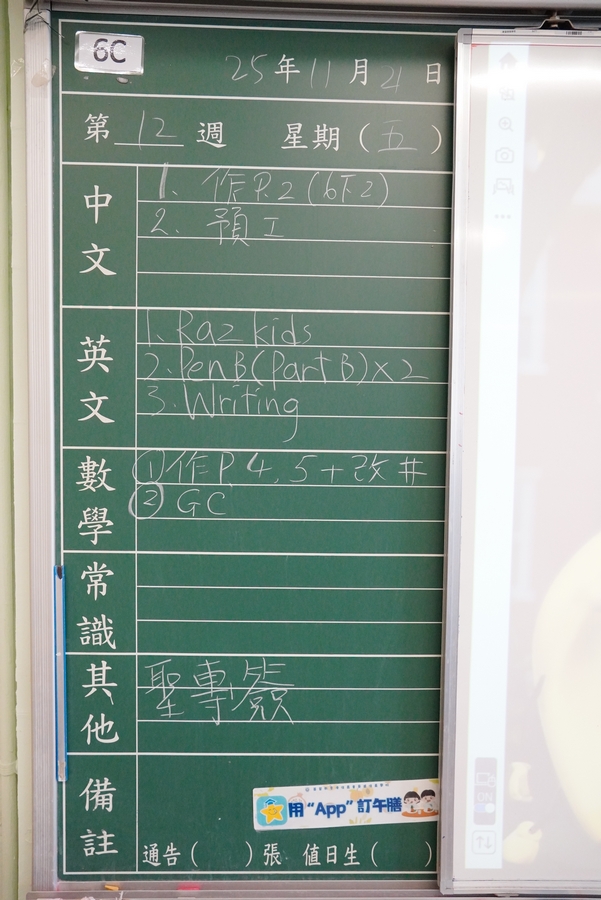 6C
25年11月21日
第12週 星期(五)
中文
1. 作P.2(6下2)
2. 預工
英文
1. Raz kids
2. Pen B(Part B)×2
3. Writing
數學
①作P.4, 5+改井
② GC
常識
其他
聖專簽
備註
用“App”訂午膳
通告( )張 值日生( )